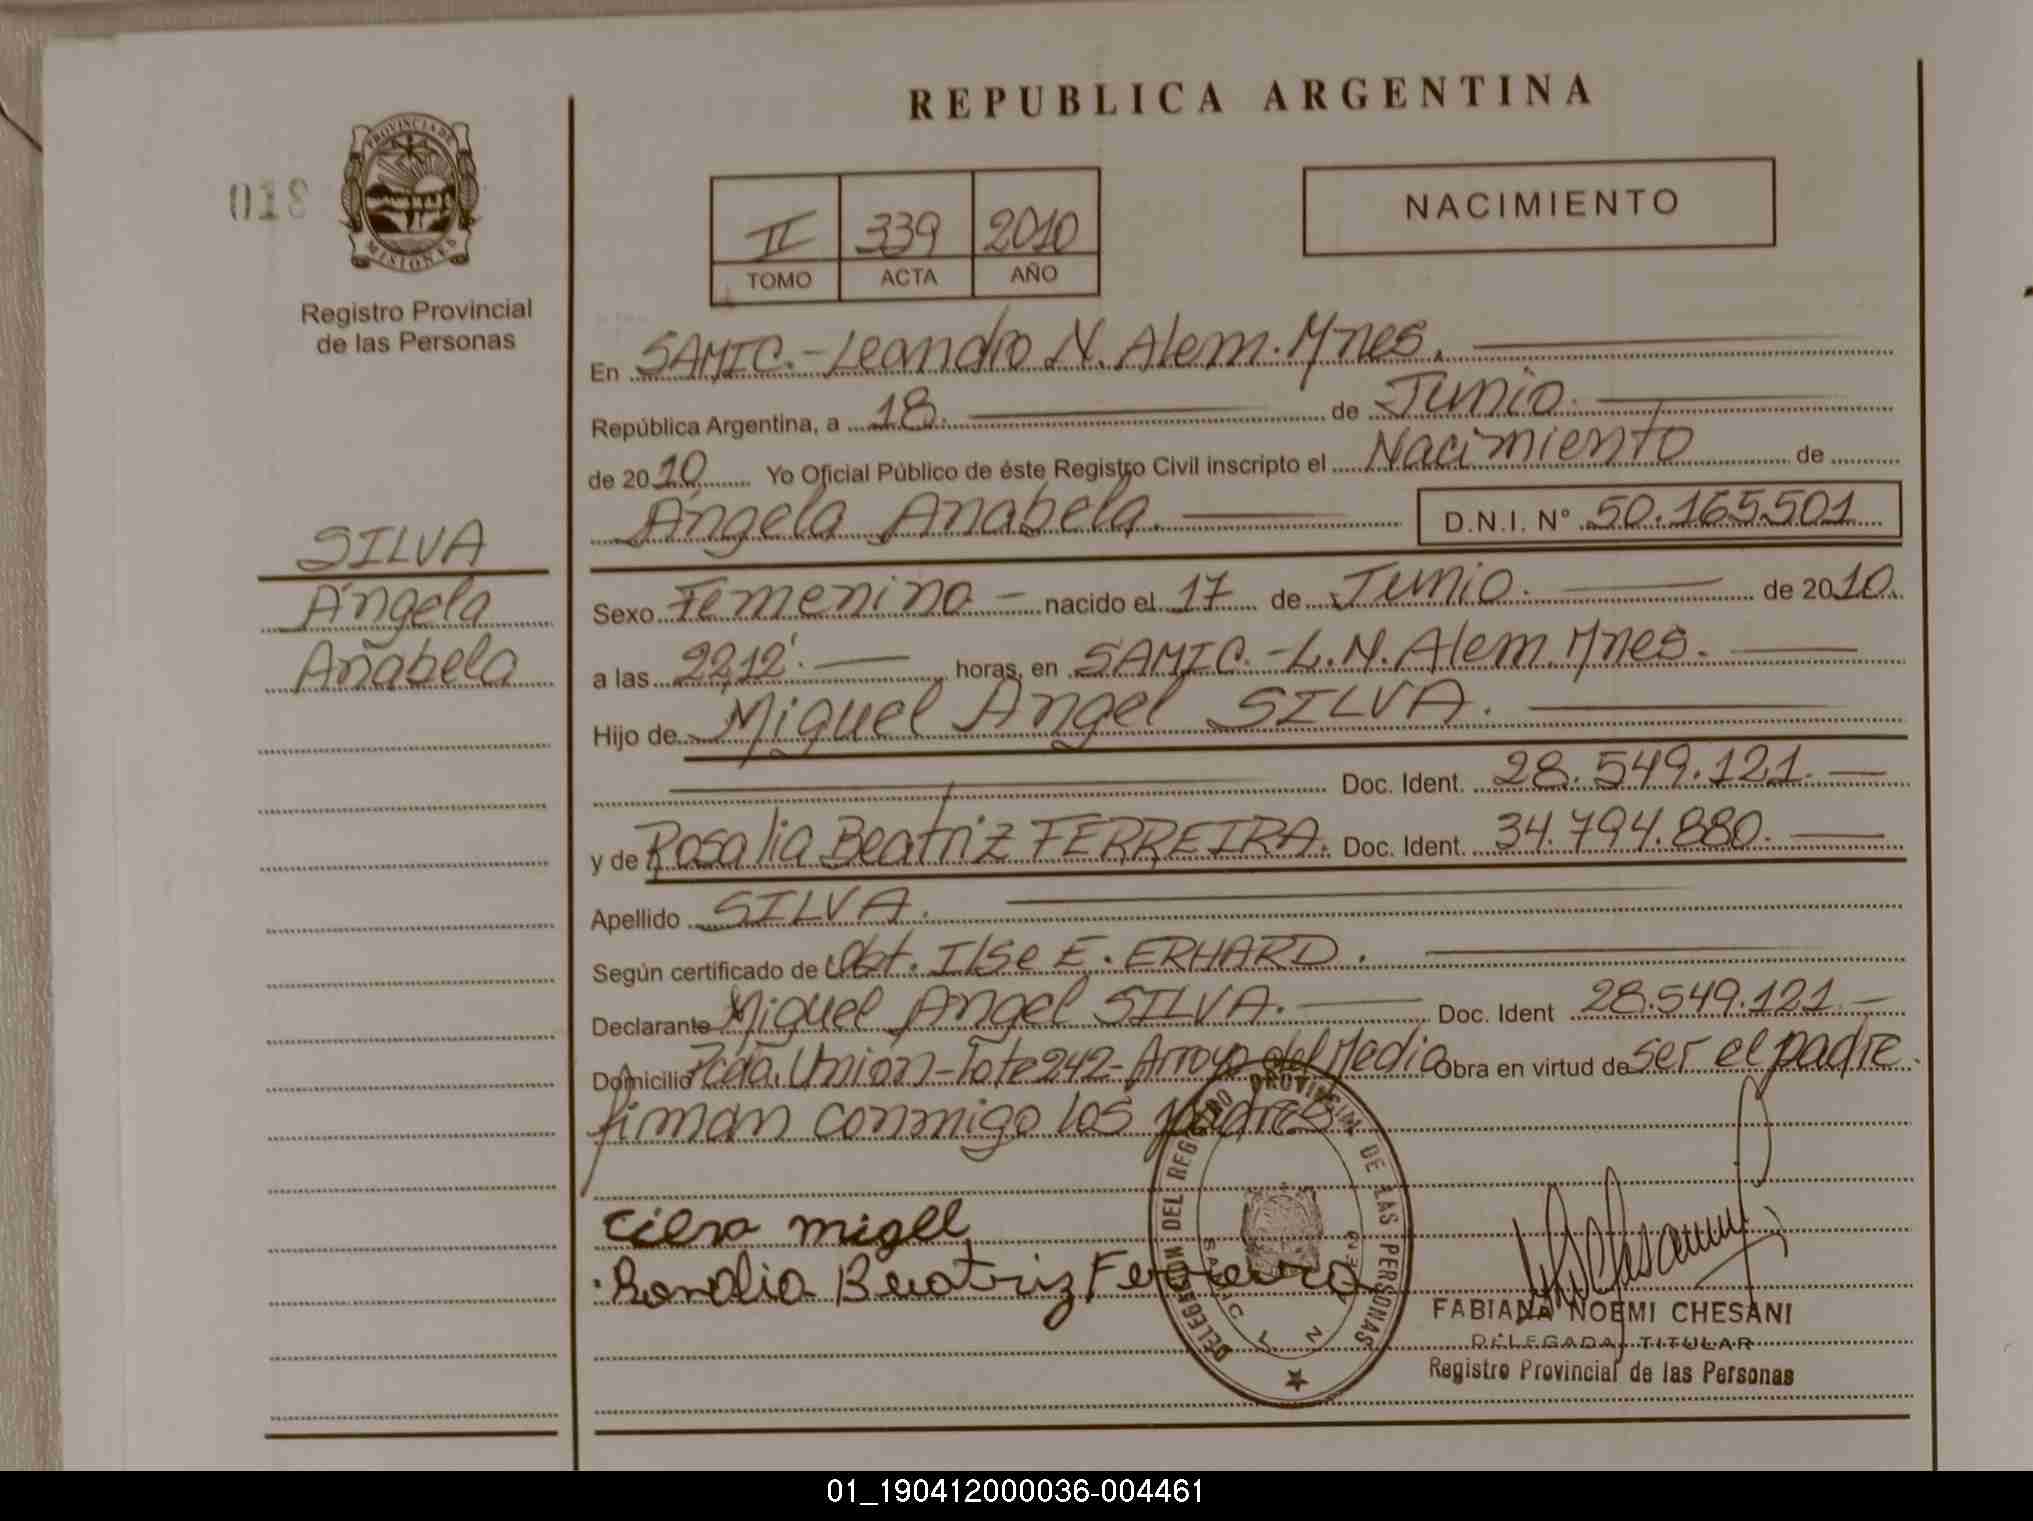 REPUBLICA ARGENTINA
018
PROVINCIA DE
MISIONES
Registro Provincial
de las Personas
II 339 2010
TOMO ACTA AÑO
NACIMIENTO
En SAMIC.-Leandro N. Alem. Mnes.
República Argentina, a 18. de Junio.
de 2010 Yo Oficial Público de éste Registro Civil inscripto el Nacimiento de
Ángela Anabela. D.N.I. N° 50.165.501
SILVA
Ángela
Anabela
Sexo Femenino - nacido el 17 de Junio. de 2010.
a las 22,12'. horas, en SAMIC.-L.N. Alem. Mnes.
Hijo de Miguel Angel SILVA.
Doc. Ident. 28.549.121.
y de Rosalia Beatriz FERREIRA. Doc. Ident. 34.794.880.
Apellido SILVA.
Según certificado de Obt. Ilse E. ERHARD.
Declarante Miguel Angel SILVA. Doc. Ident 28.549.121.
Domicilio Pcda. Union-Lote 242-Arroyo del Medio Obra en virtud de ser el padre.
firman conmigo los padres
Cilva migel
Rosalia Beatriz Ferreira
DELEGACION DEL REGISTRO PROVINCIAL DE LAS PERSONAS
FABIANA NOEMI CHESANI
DELEGADA TITULAR
Registro Provincial de las Personas
01_190412000036-004461